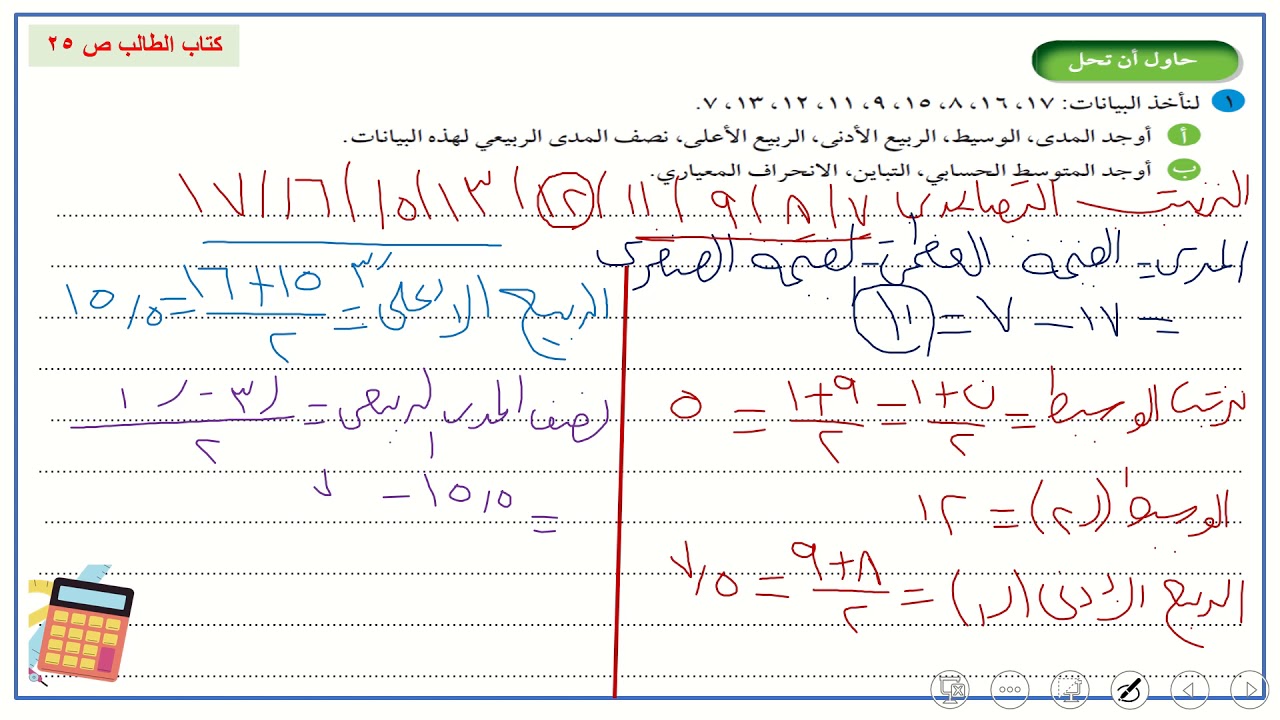 كتاب الطالب ص ٢٥
حاول أن تحل
١ لنأخذ البيانات: ١٧، ١٦، ٨، ١٥، ٩، ١١، ١٢، ١٣، ٧.
أ أوجد المدى، الوسيط، الربيع الأدنى، الربيع الأعلى، نصف المدى الربيعي لهذه البيانات.
ب أوجد المتوسط الحسابي، التباين، الانحراف المعياري.
الترتيب التصاعدي ٧، ٨، ٩، ١١، ١٢، ١٣، ١٥، ١٦، ١٧
المدى = القيمة العظمى - القيمة الصغرى
= ١٧ - ٧ = ١٠
ترتيب الوسيط = (ن+١)/٢ = (٩+١)/٢ = ٥
الوسيط (ر٢) = ١٢
الربيع الأدنى (ر١) = (٨+٩)/٢ = ٧,٥
الربيع الأعلى ر٣ = (١٥+١٦)/٢ = ١٥,٥
نصف المدى الربيعي = (ر٣ - ر١)/٢
= ١٥,٥ - ٧